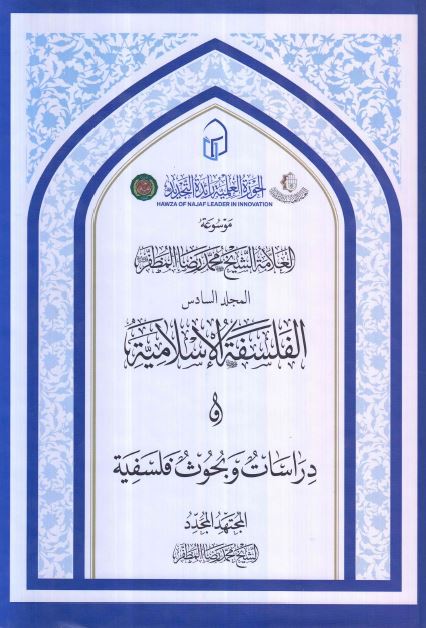 الحوزة العلمية رائدة التجدد
HAWZA OF NAJAF LEADER IN INNOVATION
موسوعة
العلامة الشيخ محمد رضا المظفر
المجلد السادس
الفلسفة الإسلامية
و
دراسات وبحوث فلسفية
المجتهد المجدد
الشيخ محمد رضا المظفر